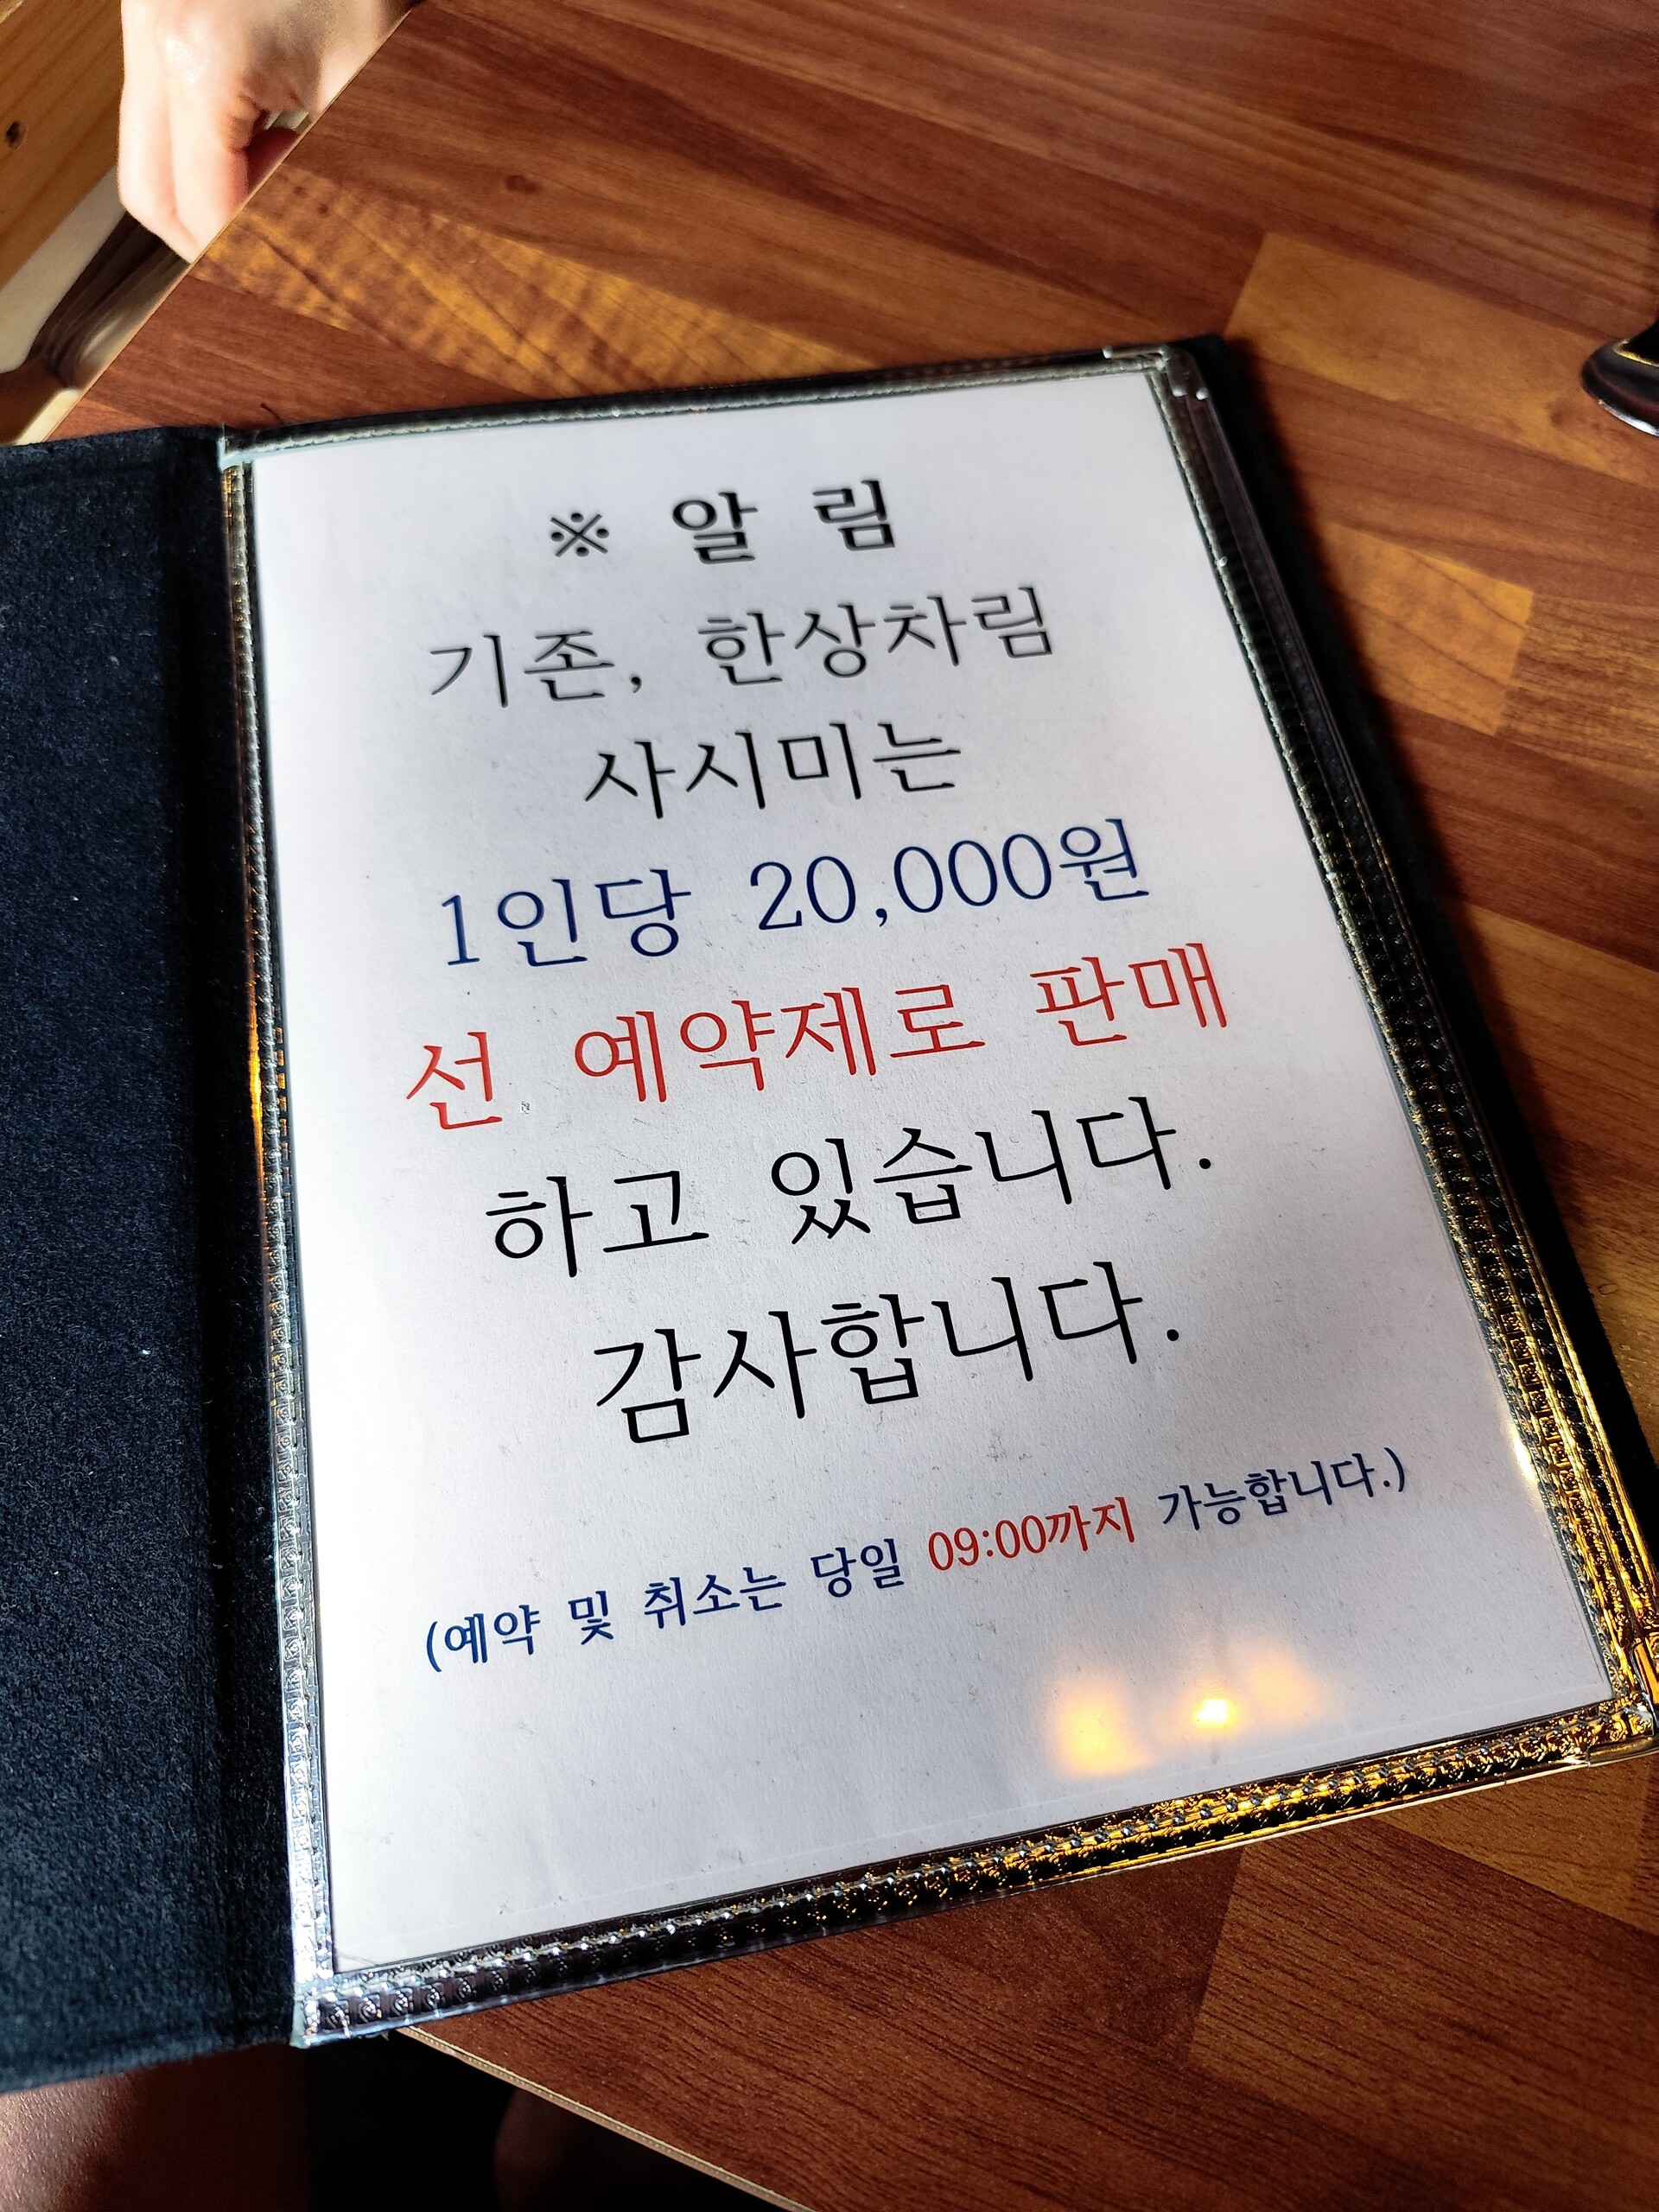 ※ 알 림
기존, 한상차림
사시미는
1인당 20,000원
선 예약제로 판매
하고 있습니다.
감사합니다.
(예약 및 취소는 당일 09:00까지 가능합니다.)